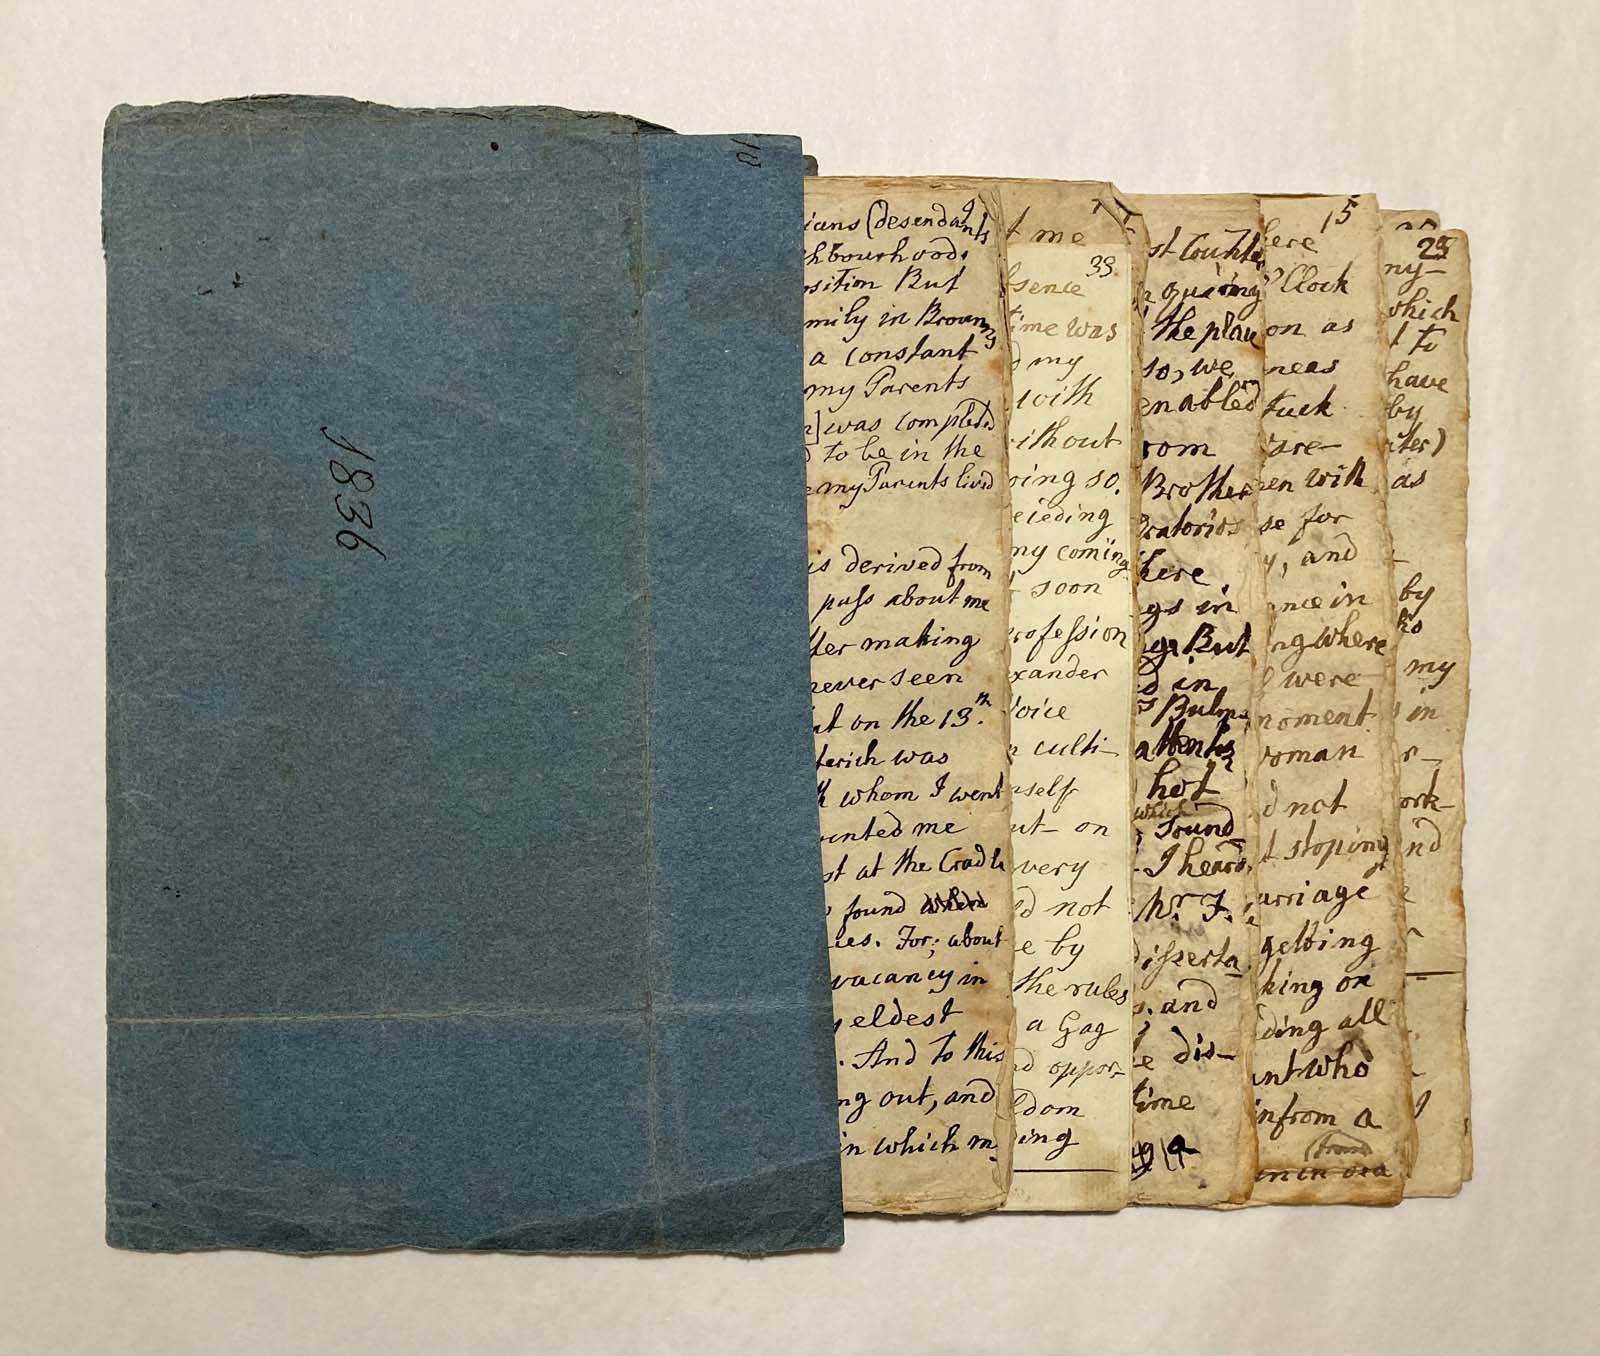 1836
10
(desendants
hbourhood.
sition But
mily in Brown
a constant
my Parents
was compled
to be in the
my Parents lived
is derived from
pass about me
ter making
never seen
on the 13th.
terich was
whom I went
me
st at the Cradle
found when
ces. For; about
vacancy in
eldest
. And to this
ng out, and
in which m
t me
33
sence
time was
my
with
ithout
ing so.
ceeding
my coming
soon
rofession
xander
Voice
culti-
self
ut on
very
not
e by
the rules
a Gag
oppor-
ldom
ing
st Count
the place
so, we
enabled
rom
Brother
ratorios
here.
gs in
But
in
Bulm
hot
which
found
I heard
Mr. F.
isserta
and
dis-
time
15
here
Clock
on as
neas
tuck
are
en with
se for
, and
nce in
ng where
were
moment
woman
not
t stoping
arriage
getting
king or
ding all
ant who
from a
25
ny-
which
to
have
by
iter)
as
by
my
in
r-
ork
nd